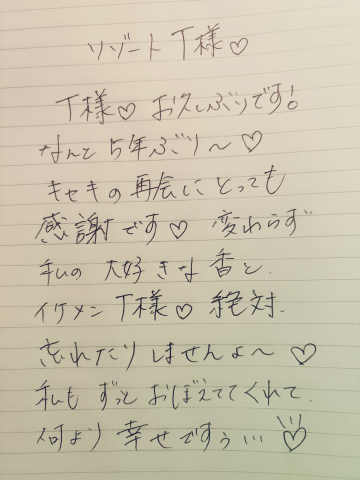 リゾート T様♡
T様♡ お久しぶりです!
なんと 5年ぶり〜♡
キセキの再会に とっても
感謝です♡ 変わらず
私の 大好きな 香と.
イケメン T様♡ 絶対.
忘れたり しませんよ〜♡
私も ずっと おぼえててくれて.
何より 幸せですぅ…♡